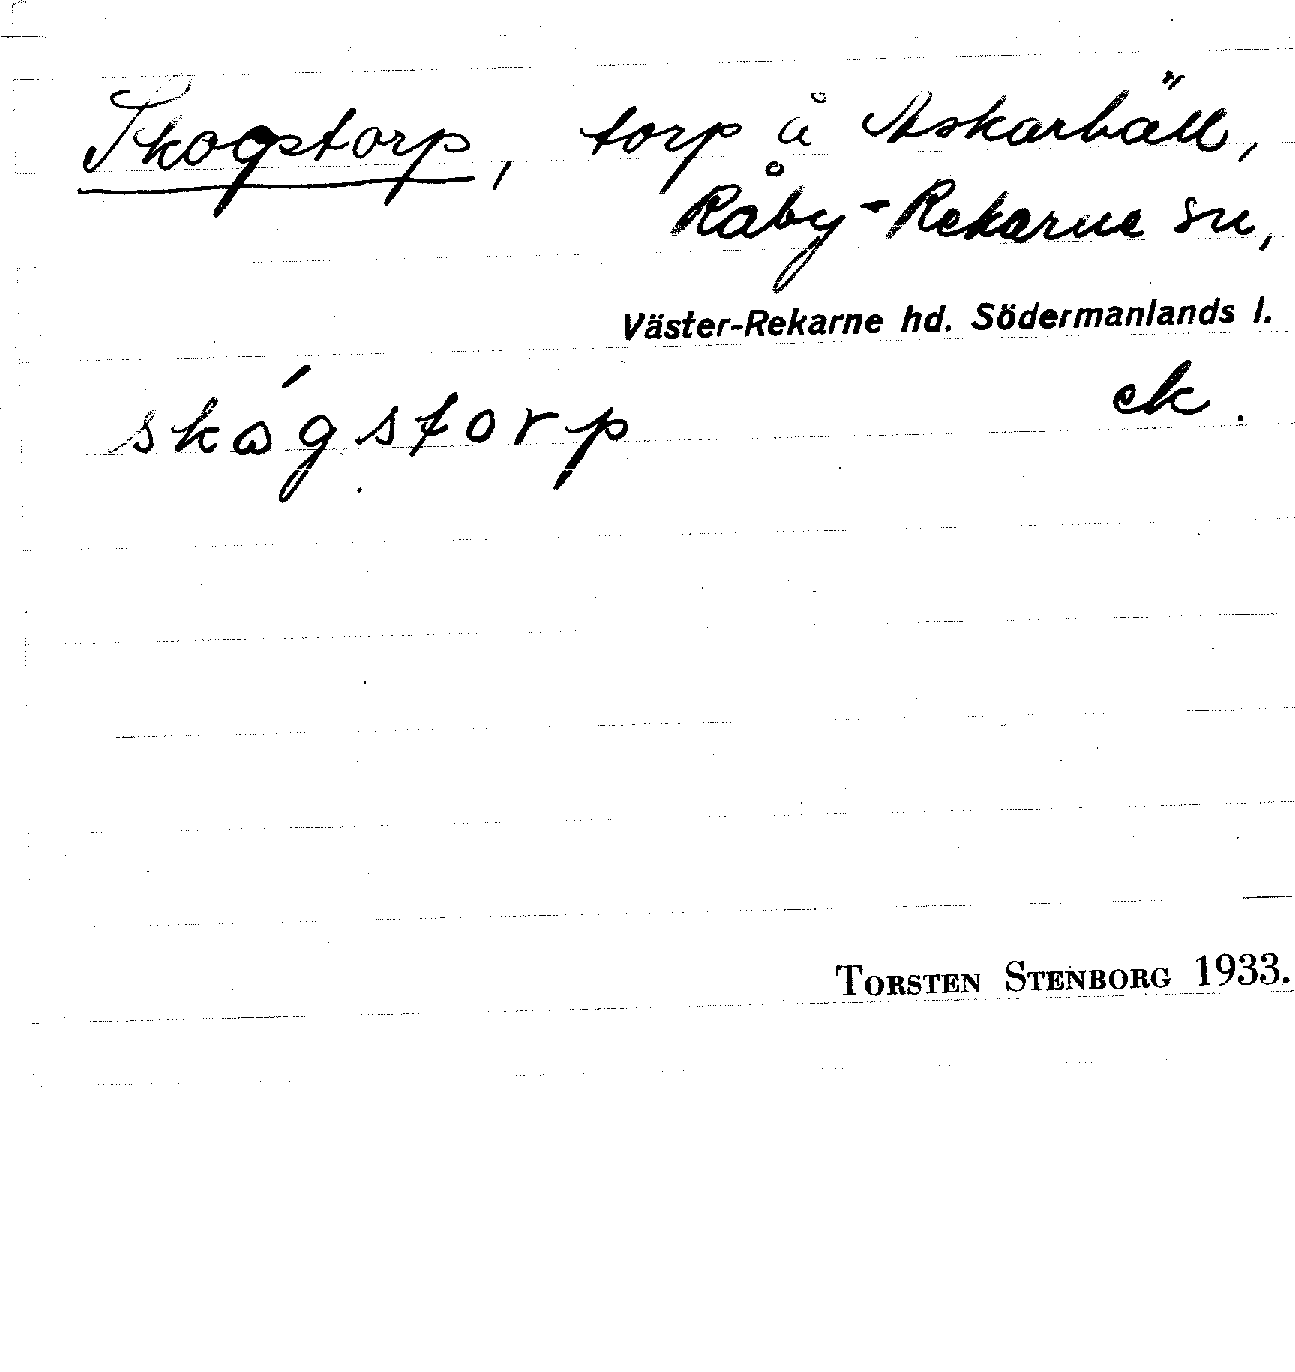 Skogstorp, torp å Askarbäll,
Råby-Rekarne sn,
Väster-Rekarne hd. Södermanlands l.
skógstorp ek.
TORSTEN STENBORG 1933.